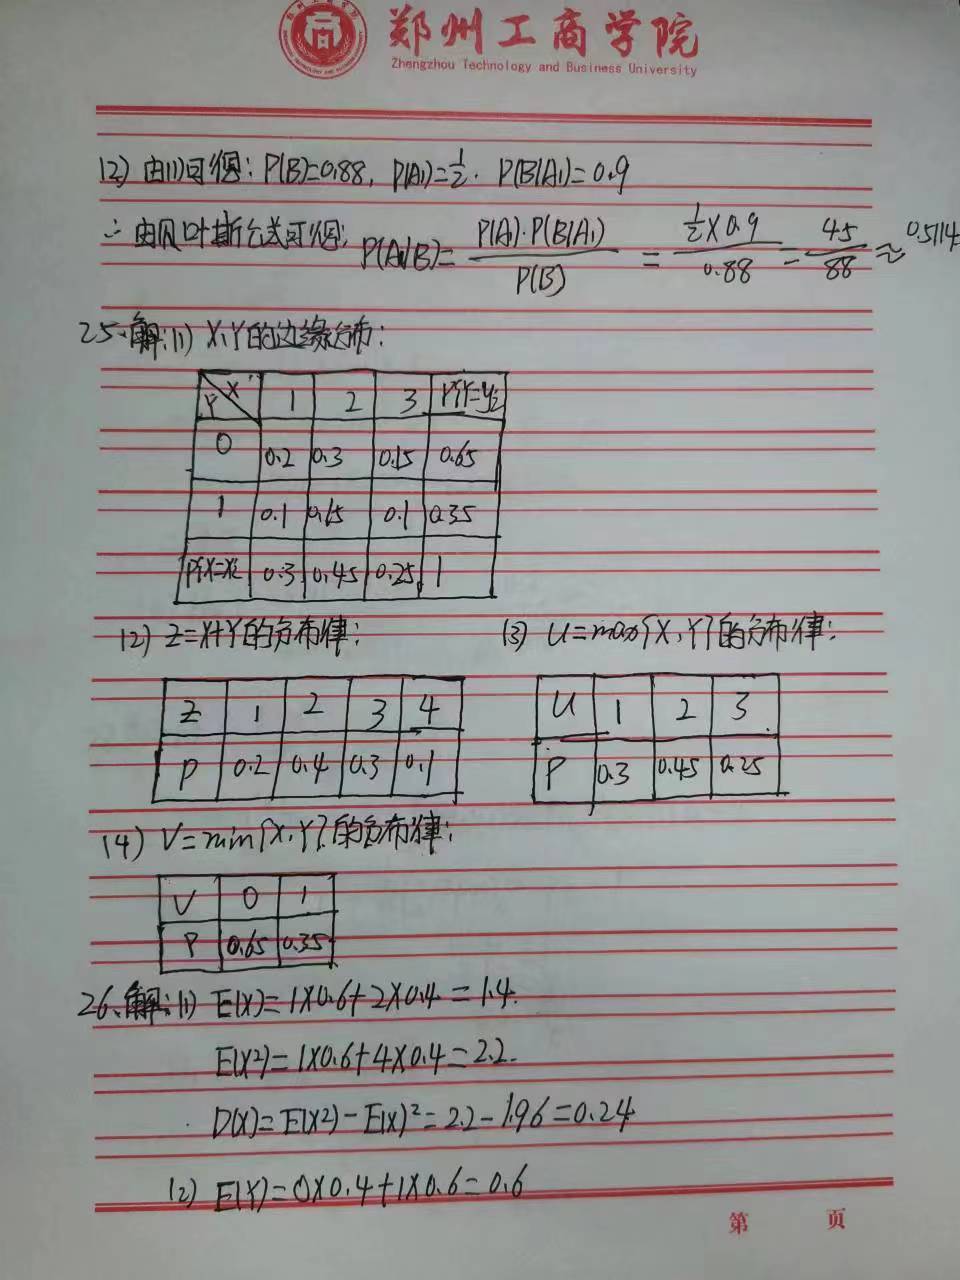 郑州工商学院
Zhengzhou Technology and Business University
(2) 由(1)可得: P(B)=0.88, P(A₁)=1/2. P(B|A₁)=0.9
∴ 由贝叶斯公式可得: P(A₁|B)= P(A₁)·P(B|A₁)/P(B) = (1/2×0.9)/0.88 = 45/88 ≈ 0.5114
25.解:(1) X,Y的边缘分布:
Y X 1 2 3 P{Y=yj}
0 0.2 0.3 0.15 0.65
1 0.1 0.15 0.1 0.35
P{X=xi} 0.3 0.45 0.25 1
(2) Z=X+Y的分布律: (3) U=max{X,Y}的分布律:
Z 1 2 3 4 U 1 2 3
P 0.2 0.4 0.3 0.1 P 0.3 0.45 0.25
(4) V=min{X,Y}的分布律:
V 0 1
P 0.65 0.35
26.解:(1) E(X)=1×0.6+2×0.4=1.4.
E(X²)=1×0.6+4×0.4=2.2.
D(X)=E(X²)-E(X)²=2.2-1.96=0.24
(2) E(Y)=0×0.4+1×0.6=0.6
第 页